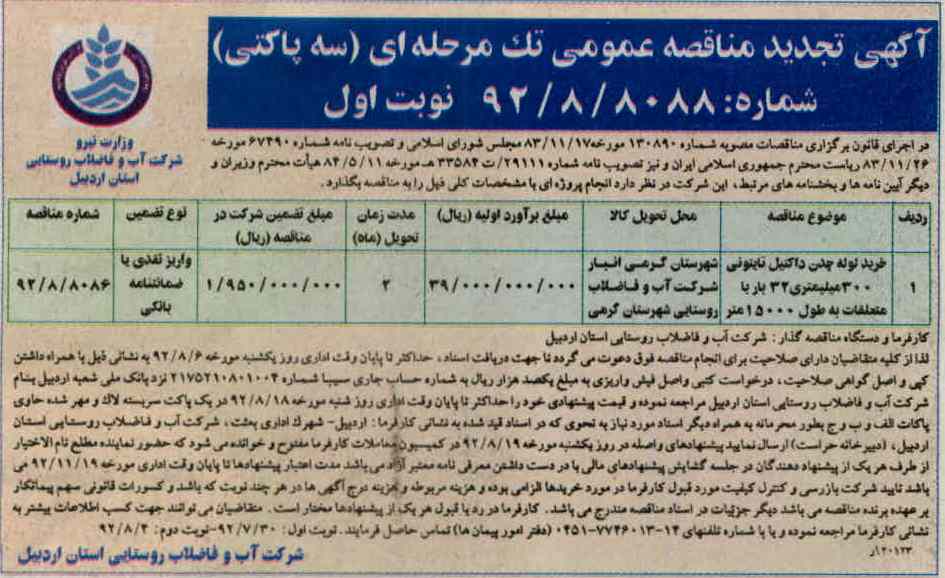 آگهی تجدید مناقصه عمومی تک مرحله ای (سه پاکتی)
شماره: ۹۲/۸/۸۰۸۸ نوبت اول
وزارت نیرو
شرکت آب و فاضلاب روستایی
استان اردبیل
در اجرای قانون برگزاری مناقصات مصوبه شماره ۱۳۰۸۹۰ مورخه ۸۳/۱۱/۱۷ مجلس شورای اسلامی و تصویب نامه شماره ۶۷۴۹۰ مورخه
۸۳/۱۱/۲۶ ریاست محترم جمهوری اسلامی ایران و نیز تصویب نامه شماره ۲۹۱۱۱/ت ۳۳۵۸۴ هـ مورخه ۸۴/۵/۱۱ هیأت محترم وزیران و
دیگر آیین نامه ها و بخشنامه های مرتبط، این شرکت در نظر دارد انجام پروژه ای با مشخصات کلی ذیل را به مناقصه بگذارد.
ردیف موضوع مناقصه محل تحویل کالا مبلغ برآورد اولیه (ریال) مدت زمان تحویل (ماه) مبلغ تضمین شرکت در مناقصه (ریال) نوع تضمین شماره مناقصه
۱ خرید لوله چدن داکتیل تایتونی ۳۰۰ میلیمتری ۳۲ بار با متعلقات به طول ۱۵۰۰۰ متر شهرستان گرمی انبار شرکت آب و فاضلاب روستایی شهرستان گرمی ۳۹/۰۰۰/۰۰۰/۰۰۰ ۲ ۱/۹۵۰/۰۰۰/۰۰۰ واریز نقدی یا ضمانتنامه بانکی ۹۲/۸/۸۰۸۶
کارفرما و دستگاه مناقصه گذار: شرکت آب و فاضلاب روستایی استان اردبیل
لذا از کلیه متقاضیان دارای صلاحیت برای انجام مناقصه فوق دعوت می گردد تا جهت دریافت اسناد، حداکثر تا پایان وقت اداری روز یکشنبه مورخه ۹۲/۸/۶ به نشانی ذیل با همراه داشتن
کپی و اصل گواهی صلاحیت، درخواست کتبی واصل فیش واریزی به مبلغ یکصد هزار ریال به شماره حساب جاری سیبا شماره ۲۱۷۵۲۱۰۸۰۱۰۰۴ نزد بانک ملی شعبه اردبیل بنام
شرکت آب و فاضلاب روستایی استان اردبیل مراجعه نموده و قیمت پیشنهادی خود را حداکثر تا پایان وقت اداری روز شنبه مورخه ۹۲/۸/۱۸ در یک پاکت سربسته لاک و مهر شده حاوی
پاکات الف و ب و ج بطور محرمانه به همراه دیگر اسناد مورد نیاز به نحوی که در اسناد قید شده به نشانی کارفرما: اردبیل- شهرک اداری بعثت، شرکت آب و فاضلاب روستایی استان
اردبیل، (دبیرخانه حراست) ارسال نمایند پیشنهادهای واصله در روز یکشنبه مورخه ۹۲/۸/۱۹ در کمیسیون معاملات کارفرما مفتوح و خوانده می شود که حضور نماینده مطلع تام الاختیار
از طرف هر یک از پیشنهاد دهندگان در جلسه گشایش پیشنهادهای مالی با در دست داشتن معرفی نامه معتبر آزاد می باشد مدت اعتبار پیشنهادها تا پایان وقت اداری مورخه ۹۲/۱۱/۱۹ می
باشد تایید شرکت بازرسی و کنترل کیفیت مورد قبول کارفرما در مورد خریدها الزامی بوده و هزینه مربوطه و هزینه درج آگهی ها در هر چند نوبت که باشد و کسورات قانونی سهم پیمانکار
بر عهده برنده مناقصه می باشد دیگر جزئیات در اسناد مناقصه مندرج می باشد. کارفرما در رد یا قبول هر یک از پیشنهادها مختار است. متقاضیان می توانند جهت کسب اطلاعات بیشتر به
نشانی کارفرما مراجعه نموده و یا با شماره تلفنهای ۱۴-۷۷۴۶۰۱۳-۰۴۵۱ (دفتر امور پیمان ها) تماس حاصل فرمایند. نوبت اول: ۹۲/۷/۳۰-نوبت دوم: ۹۲/۸/۴
۲۰۱۲۳/ار
شرکت آب و فاضلاب روستایی استان اردبیل